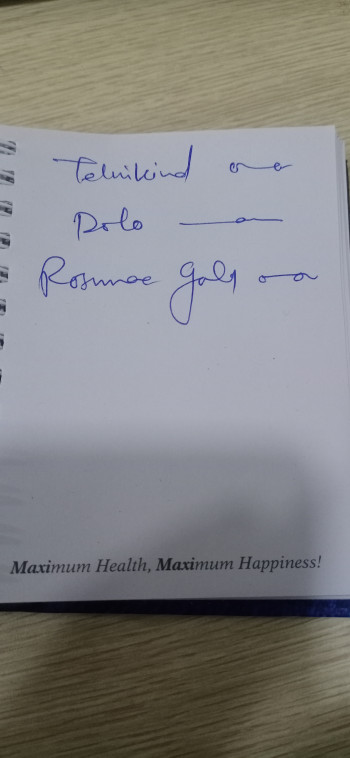 Telmikind o—o
Dolo —o—
Rosumac Gold o—o
Maximum Health, Maximum Happiness!